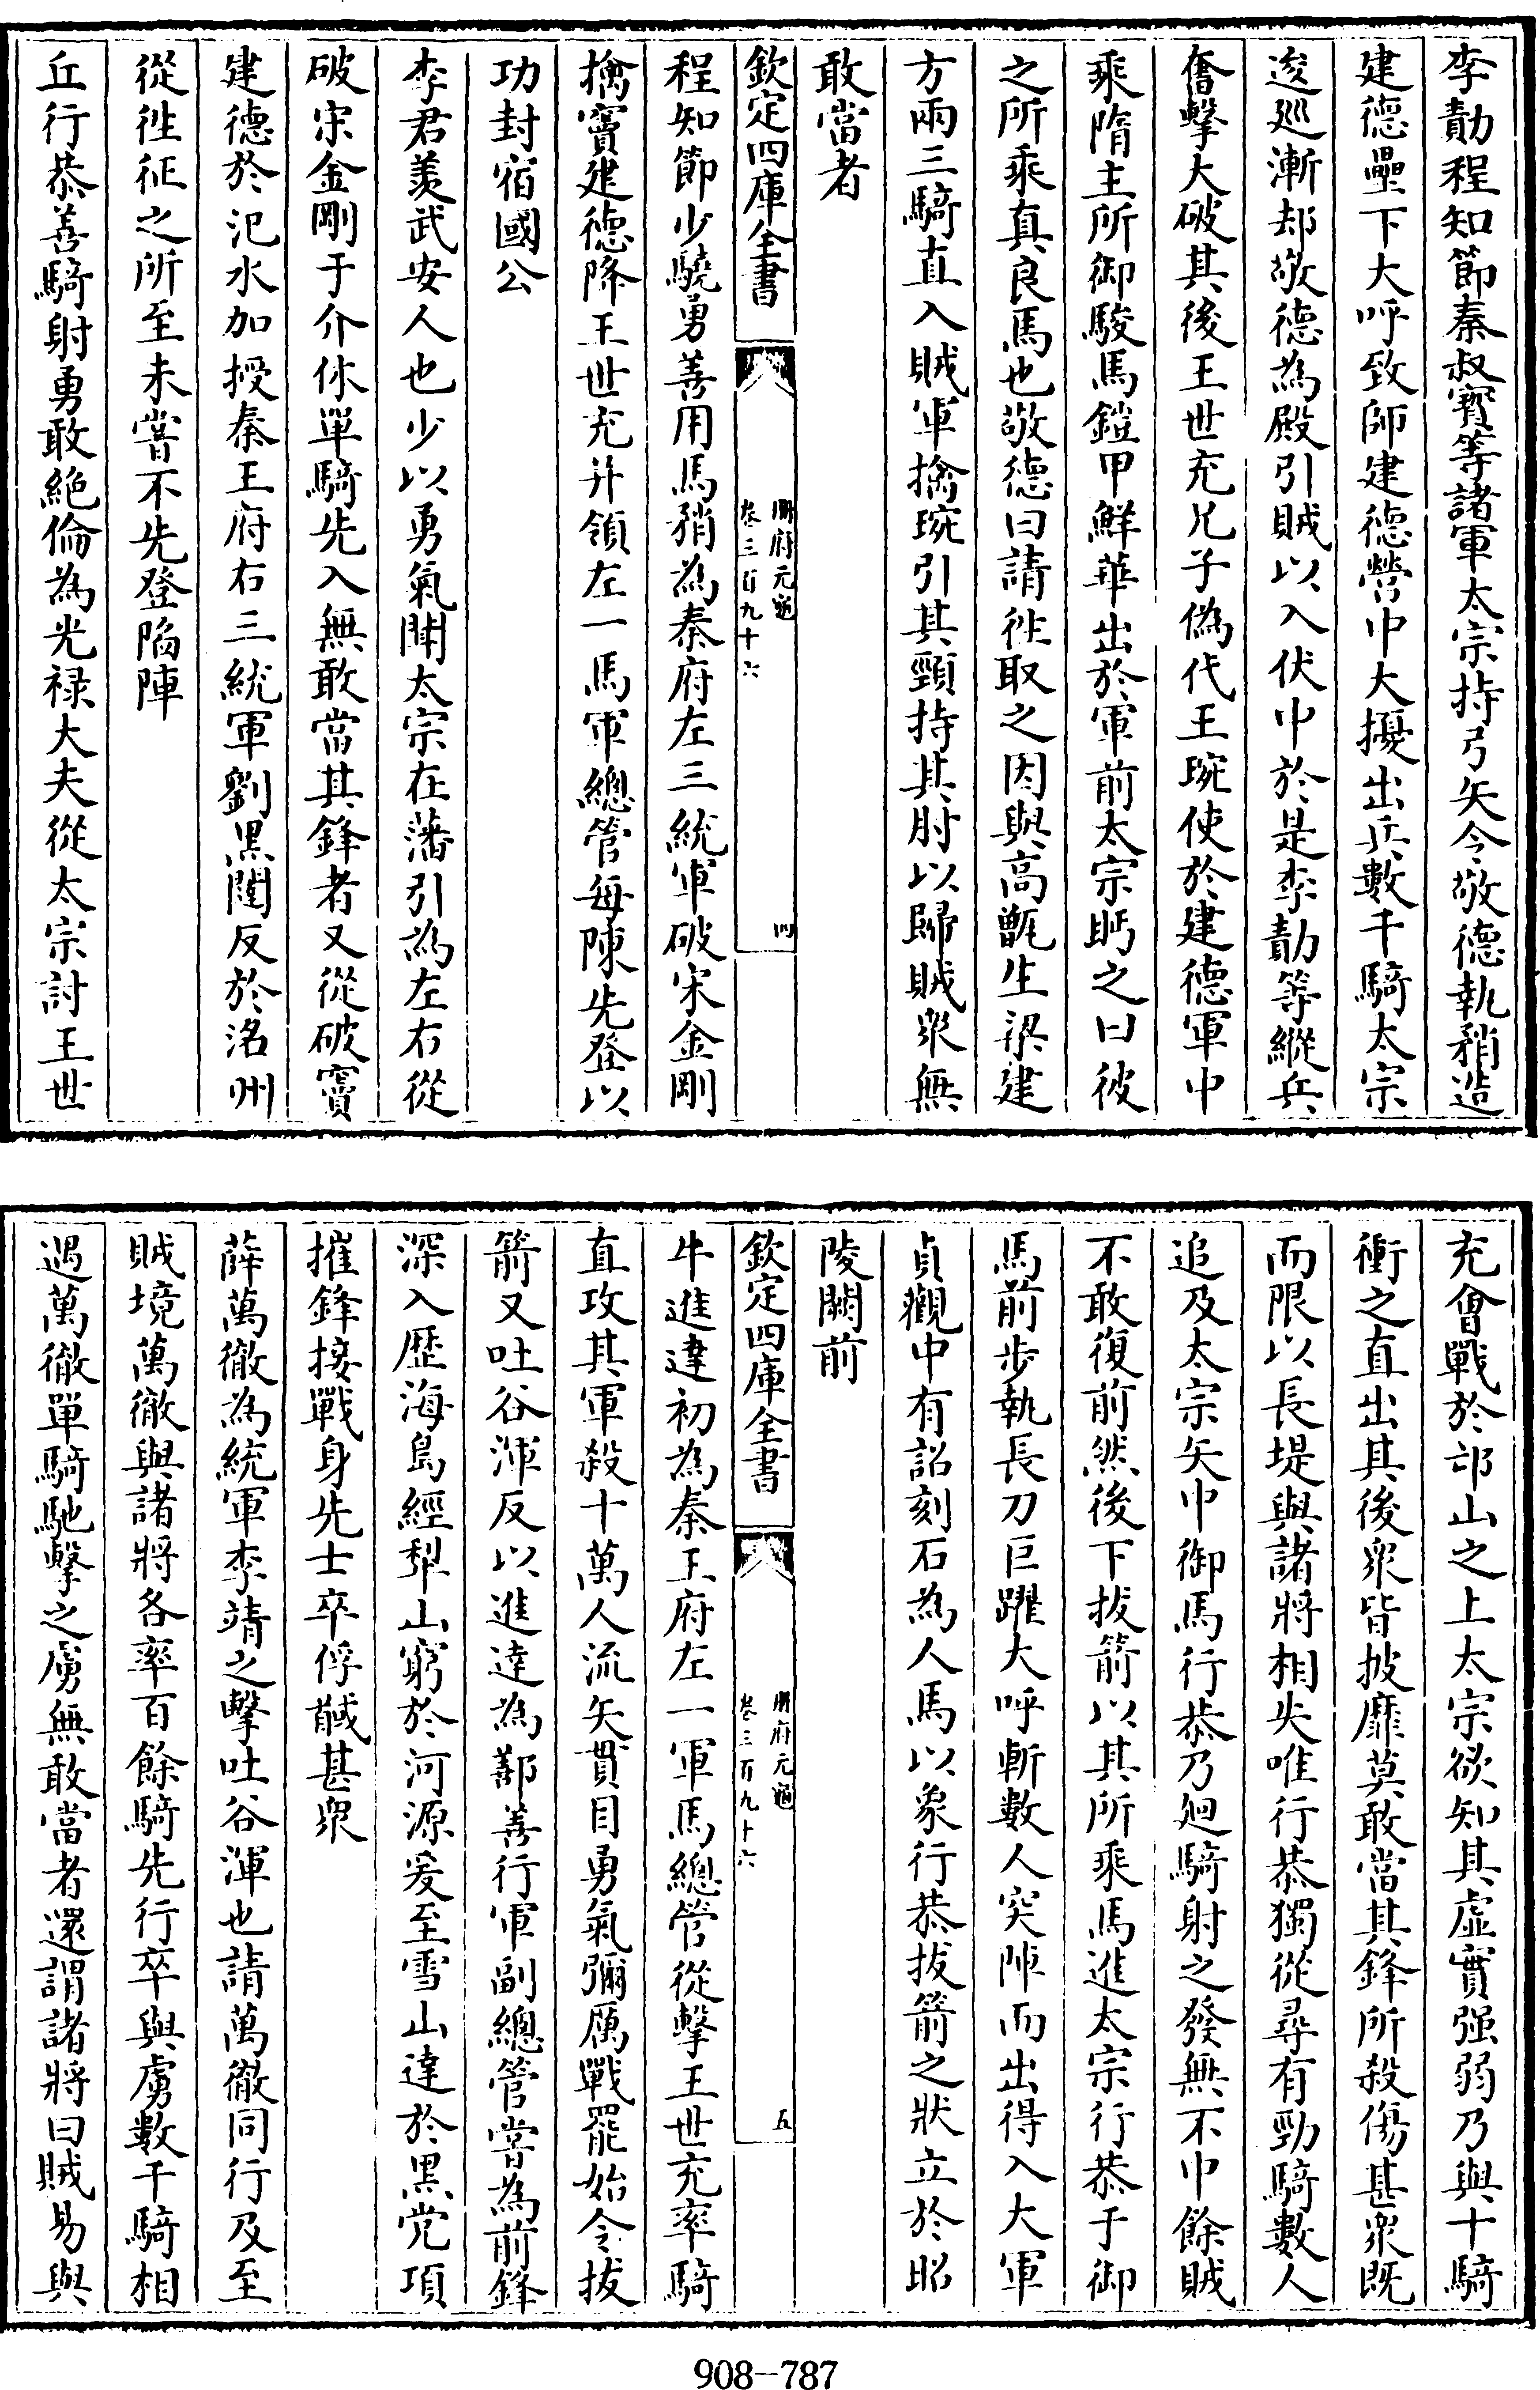 李勣程知節秦叔寳等諸軍太宗持弓矢今敬德執矟造
建德壘下大呼致師建德營中大擾出兵數千騎太宗
逡巡漸却敬德為殿引賊以入伏中於是李勣等縱兵
奮擊大破其後王世充兄子偽代王琬使於建德軍中
乘隋主所御駿馬鎧甲鮮華出於軍前太宗眄之曰彼
之所乘真良馬也敬德曰請徃取之因與高甑生梁建
方兩三騎直入賊軍擒琬引其頸持其肘以歸賊衆無
敢當者
欽定四庫全書
册府元龜
卷三百九十六
四
程知節少驍勇善用馬矟為秦府左三統軍破宋金剛
擒竇建德降王世充幷領左一馬軍總管每陳先登以
功封宿國公
李君羨武安人也少以勇氣聞太宗在藩引為左右從
破宋金剛于介休單騎先入無敢當其鋒者又從破竇
建德於汜水加授秦王府右三統軍劉黑闥反於洺州
從徃征之所至未嘗不先登陷陣
丘行恭善騎射勇敢絶倫為光禄大夫從太宗討王世
充會戰於邙山之上太宗欲知其虛實强弱乃與十騎
衝之直出其後衆皆披靡莫敢當其鋒所殺傷甚衆既
而限以長堤與諸將相失唯行恭獨從尋有勁騎數人
追及太宗矢中御馬行恭乃廻騎射之發無不中餘賊
不敢復前然後下拔箭以其所乘馬進太宗行恭于御
馬前步執長刀巨躍大呼斬數人突陣而出得入大軍
貞觀中有詔刻石為人馬以象行恭拔箭之狀立於昭
陵闕前
欽定四庫全書
册府元龜
卷三百九十六
五
牛進達初為秦王府左一軍馬總管從擊王世充率騎
直攻其軍殺十萬人流矢貫目勇氣彌厲戰罷始令拔
箭又吐谷渾反以進達為鄯善行軍副總管嘗為前鋒
深入歴海島經犁山窮於河源爰至雪山達於黑党項
摧鋒接戰身先士卒俘馘甚衆
薛萬徹為統軍李靖之擊吐谷渾也請萬徹同行及至
賊境萬徹與諸將各率百餘騎先行卒與虜數千騎相
遇萬徹單騎馳擊之虜無敢當者還謂諸將曰賊易與
908-787